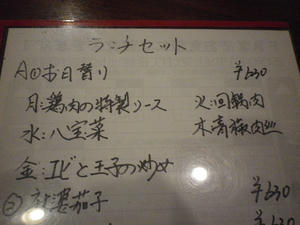 ランチセット
A①お日替り ¥630
月:鶏肉の特製ソース 火:回鍋肉
水:八宝菜 木:青椒肉絲
金:エビと玉子の炒め
② 婆茄子 ¥630